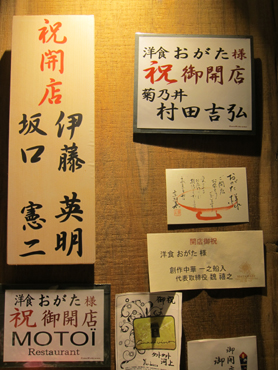 祝開店
伊藤 英明
坂口 憲二
洋食 おがた 様
祝 御開店
菊乃井
村田吉弘
開店御祝
洋食 おがた 様
創作中華 一之船入
代表取締役 魏 禧之
洋食 おがた 様
祝 御開店
MOTOÏ
Restaurant
御祝